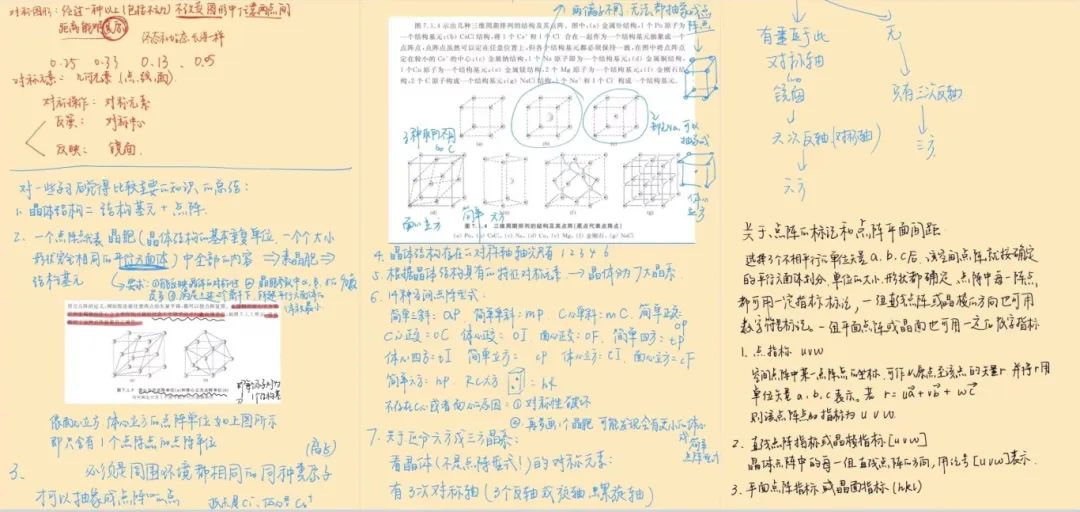 对称图形：经过一种以上(包括不动)不改变图形中任意两点间
距离的操作复原
0.25 0.33 0.13 0.05
对称元素：几何元素(点.线.面)
对称操作：对称元素
反演：对称中心
反映：镜面
对一些学习后觉得比较重要的知识的总结：
1. 晶体结构 = 结构基元 + 点阵.
2. 一个点阵点代表 晶胞(晶体结构的基本重复单位. 一个个大小
形状完全相同的平行六面体)中全部的内容 ⇒ 素晶胞 ⇒
结构基元
像面心立方 体心立方的点阵单位如上图所示
即只含有1个点阵点的点阵单位
3. 必须是周围环境都相同的同种类原子
才可以抽象成点阵的点
两个离子不同, 无法都抽象成点阵点
图7.1.4示出几种三维周期排列的结构及其点阵。图中：(a)金属钋结构,1个Po原子为一
个结构基元；(b) CsCl结构,将1个Cs⁺和1个Cl⁻合在一起作为一个结构基元抽象成一个
点阵点,点阵点虽然可以定在任意位置上,但各个结构基元都必须保持一致,在图中将点阵点
定在较小的Cs⁺的中心；(c)金属钠结构,1个Na原子即为一个结构基元；(d)金属铜结构,
1个Cu原子为一个结构基元；(e)金属镁结构,2个Mg原子为一个结构基元；(f)金刚石结
构,2个C原子构成一个结构基元；(g) NaCl结构,1个Na⁺和1个Cl⁻构成一个结构基元。
(a) (b) (c)
(d) (e) (f) (g)
面心立方
简单六方
体心立方
图7.1.4 三维周期排列的结构及其点阵(黑点代表点阵点)
(a) Po, (b) CsCl, (c) Na, (d) Cu, (e) Mg, (f) 金刚石, (g) NaCl.
4. 晶体结构存在的对称轴轴次只有 1 2 3 4 6
5. 根据晶体结构具有的特征对称元素 → 晶体分为7大晶系.
6. 14种空间点阵型式：
简单三斜：aP. 简单单斜：mP. C心单斜：mC. 简单正交：oP
C心正交：oC 体心正交：oI. 面心正交：oF. 简单四方：tP
体心四方：tI 简单立方：cP 体心立方：cI. 面心立方：cF
简单六方：hP. R心六方：hR
不存在C心或者面心的原因：① 对称性破坏
7. 关于区分六方或三方晶系：
看晶体(不是点阵型式!)的对称元素：
有3次对称轴(3个反轴或旋轴、螺旋轴)
有垂直于此
对称轴的
镜面
六次反轴(对称轴)
六方
无
只有三次反轴
三方
关于点阵的标记和点阵平面间距.
选择3个不相平行的单位矢量 a. b. c 后, 该空间点阵就按确定
的平行六面体划分, 单位的大小、形状都确定. 点阵中每一阵点
都可用一定指标标记, 一组直线点阵或晶棱的方向也可用
数字符号标记. 一组平面点阵或晶面也可用一定的数字指标
1. 点指标 uvw
空间点阵中某一点阵点的坐标, 可作从原点至该点的矢量r 并将r用
单位矢量 a. b. c 表示. 若 r = ua + vb + wc
则该点阵点的指标为 u v w.
2. 直线点阵指标或晶棱指标 [uvw]
晶体点阵中的每一组直线点阵的方向, 用记号[uvw]表示.
3. 平面点阵指标或晶面指标 (hkl)